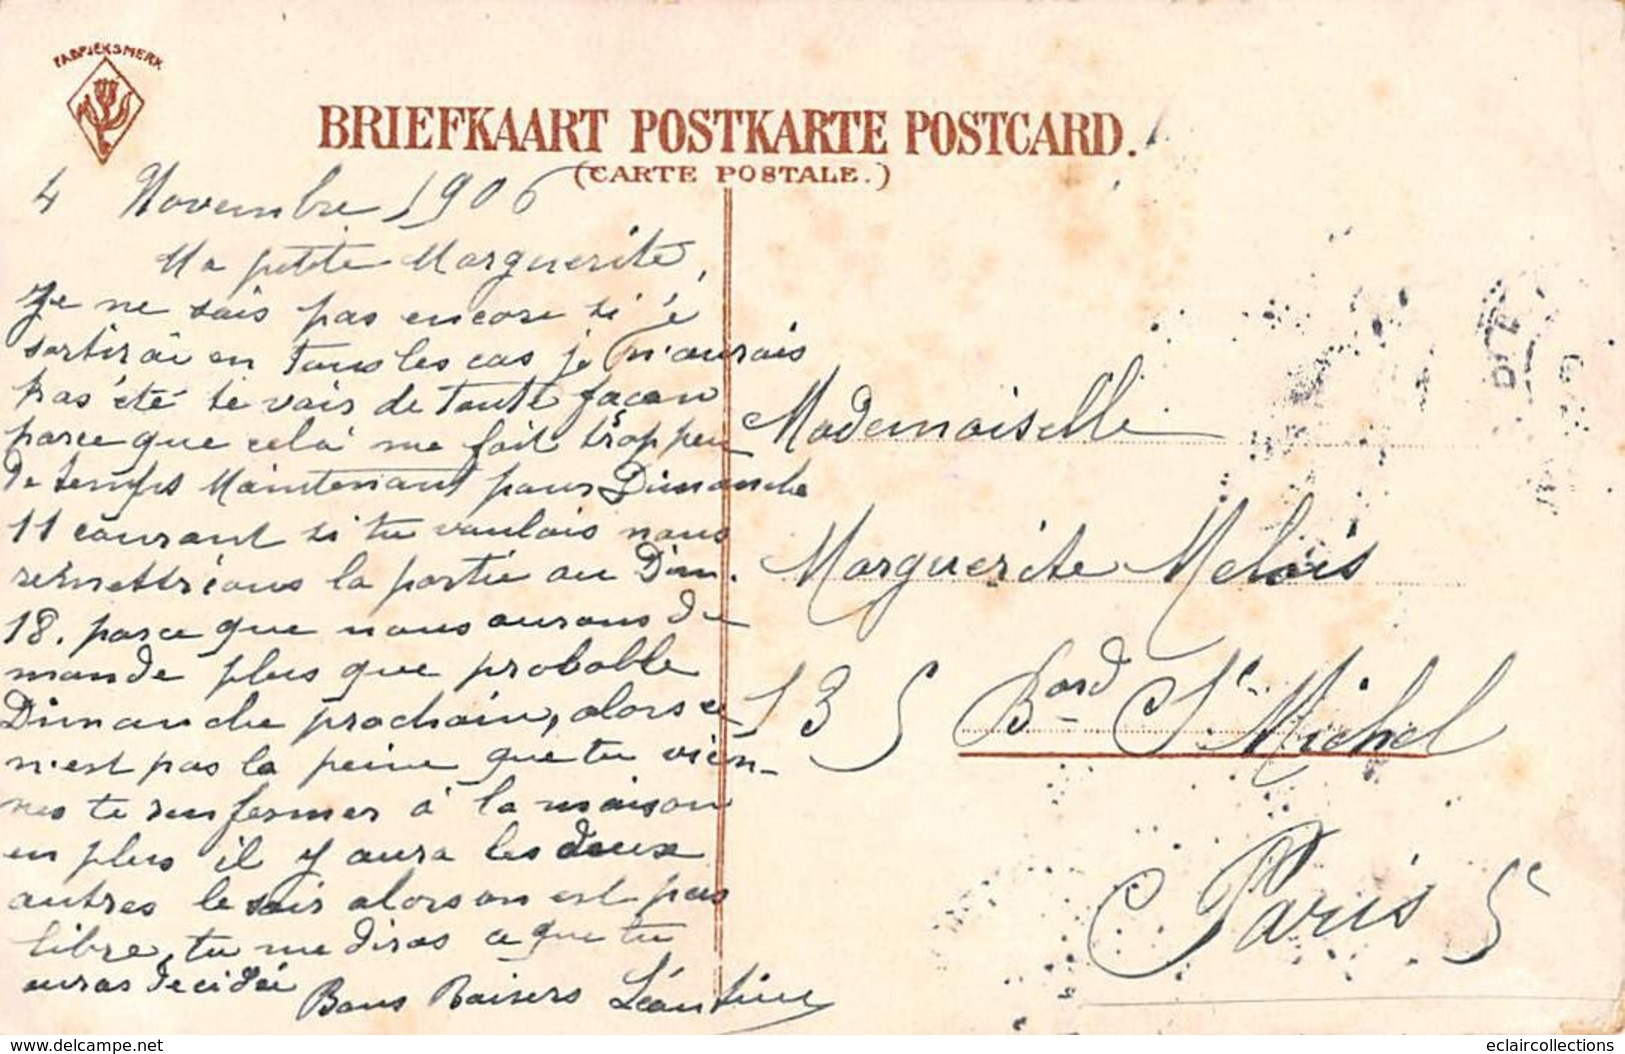 FABRIEKSMERK
BRIEFKAART POSTKARTE POSTCARD.
(CARTE POSTALE.)
4 Novembre 1906
Ma petite Marguerite,
Je ne sais pas encore si je
sortirai en tous les cas je n'aurais
pas été te voir de toute façon
parce que cela me fait trop peu
de temps Maintenant pour Dimanche
11 courant si tu voulais nous
remettrions la partie au Dim.
18. parce que nous aurons du
monde plus que probable
Dimanche prochain, alors ce
n'est pas la peine que tu vien-
nes te renfermer à la maison
en plus il y aura les deux
autres le soir alors on est pas
libre, tu me diras ce que tu
auras décidé
Bons Baisers Léontine
Mademoiselle
Marguerite Melois
135 Bard St. Michel
Paris 5e
www.delcampe.net
eclaircollections